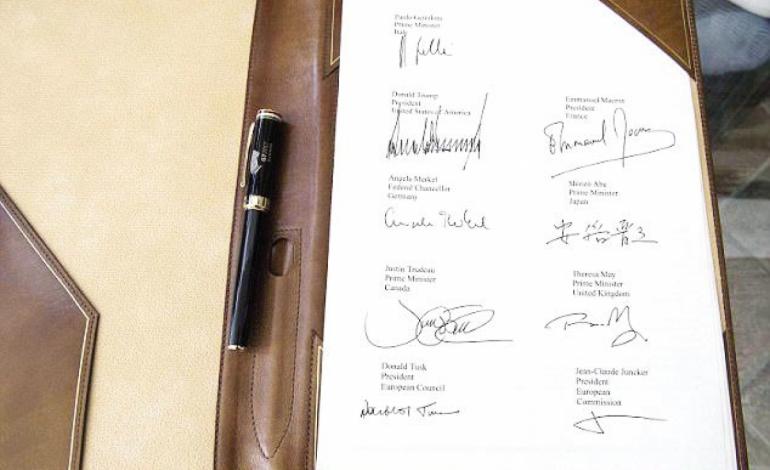 Paolo Gentiloni
Prime Minister
Italy
Donald Trump
President
United States of America
Emmanuel Macron
President
France
Emmanuel Macron
Angela Merkel
Federal Chancellor
Germany
Angela Merkel
Shinzo Abe
Prime Minister
Japan
安倍晋三
Justin Trudeau
Prime Minister
Canada
Theresa May
Prime Minister
United Kingdom
Donald Tusk
President
European Council
Donald Tusk
Jean-Claude Juncker
President
European
Commission